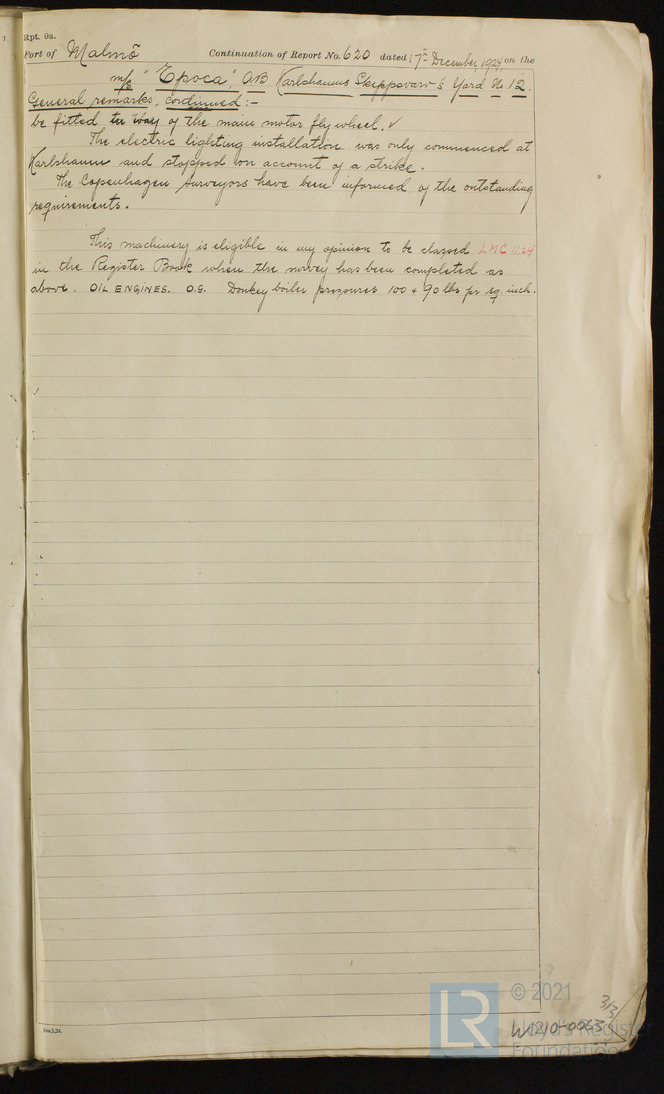 Rpt. 9a.
Port of Malmö Continuation of Report No. 620 dated 17th December, 1924, on the
m/s "Epoca", A/B Karlshamns Skeppsvarv's Yard No 12.
General remarks, continued:-
be fitted in way of the main motor flywheel. ✓
The electric lighting installation was only commenced at
Karlshamn and stopped on account of a strike.
The Copenhagen Surveyors have been informed of the outstanding
requirements.
This machinery is eligible in my opinion to be classed LMC 11.24
in the Register Book when the survey has been completed as
above. OIL ENGINES. O.G. Donkey boiler pressures 100 & 90 lbs pr sq. inch.
© 2021
Lloyd's Register
Foundation
W1210-0063
3/3